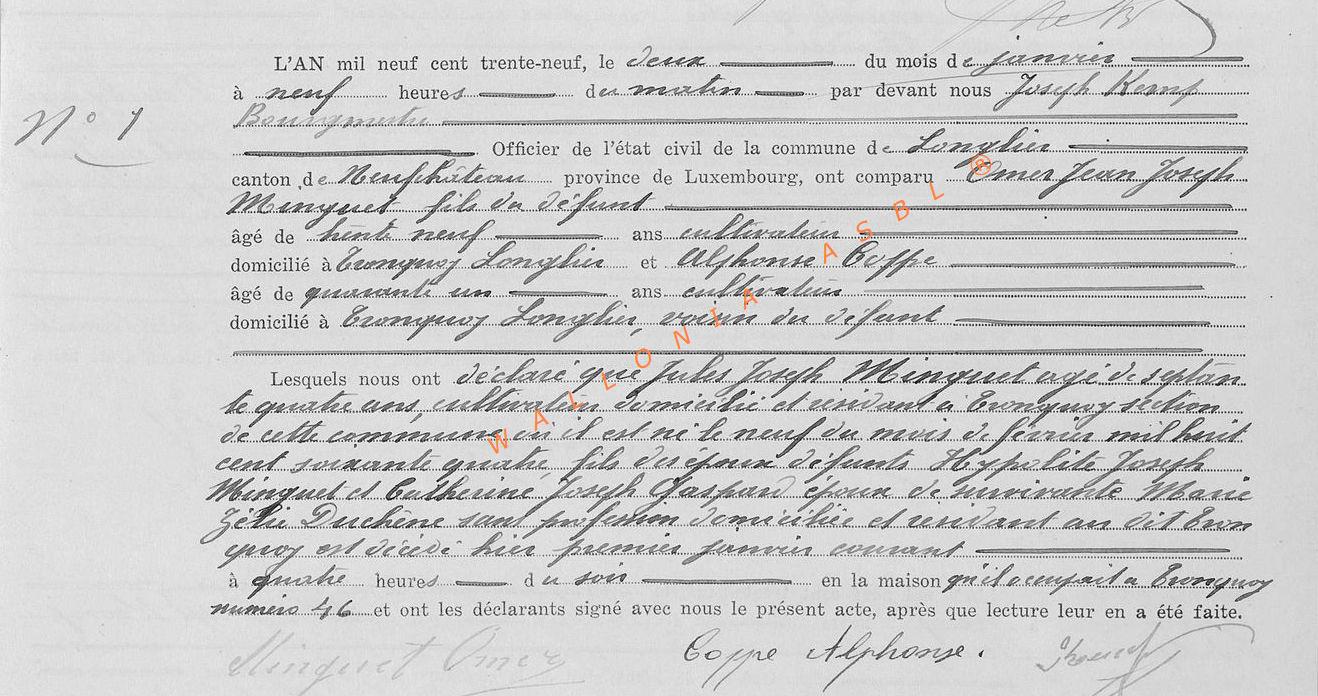 L'AN mil neuf cent trente-neuf, le deux du mois de janvier
à neuf heures du matin par devant nous Joseph Kempf
N° 1
Bourgmestre
Officier de l'état civil de la commune de Longlier
canton de Neufchâteau province de Luxembourg, ont comparu Omer Jean Joseph
Minguet fils du défunt
âgé de trente neuf ans cultivateur
domicilié à Tronquoy Longlier et Alphonse Coppe
âgé de quarante un ans cultivateur
domicilié à Tronquoy Longlier, voisin du défunt
Lesquels nous ont déclaré que Jules Joseph Minguet agé de septan
te quatre ans, cultivateur domicilié et résidant à Tronquoy section
de cette commune où il est né le neuf du mois de février mil huit
cent soixante quatre, fils des époux défunts Hypolite Joseph
Minguet et Catherine Joseph Gaspard époux de survivante Marie
Zélie Duchêne sans profession domiciliée et résidant au dit Tron
quoy est décédé hier premier janvier courant
à quatre heures du soir en la maison qu'il occupait à Tronquoy
numéro 46 et ont les déclarants signé avec nous le présent acte, après que lecture leur en a été faite.
Minguet Omer Coppe Alphonse.
WALLONIA ASBL ®